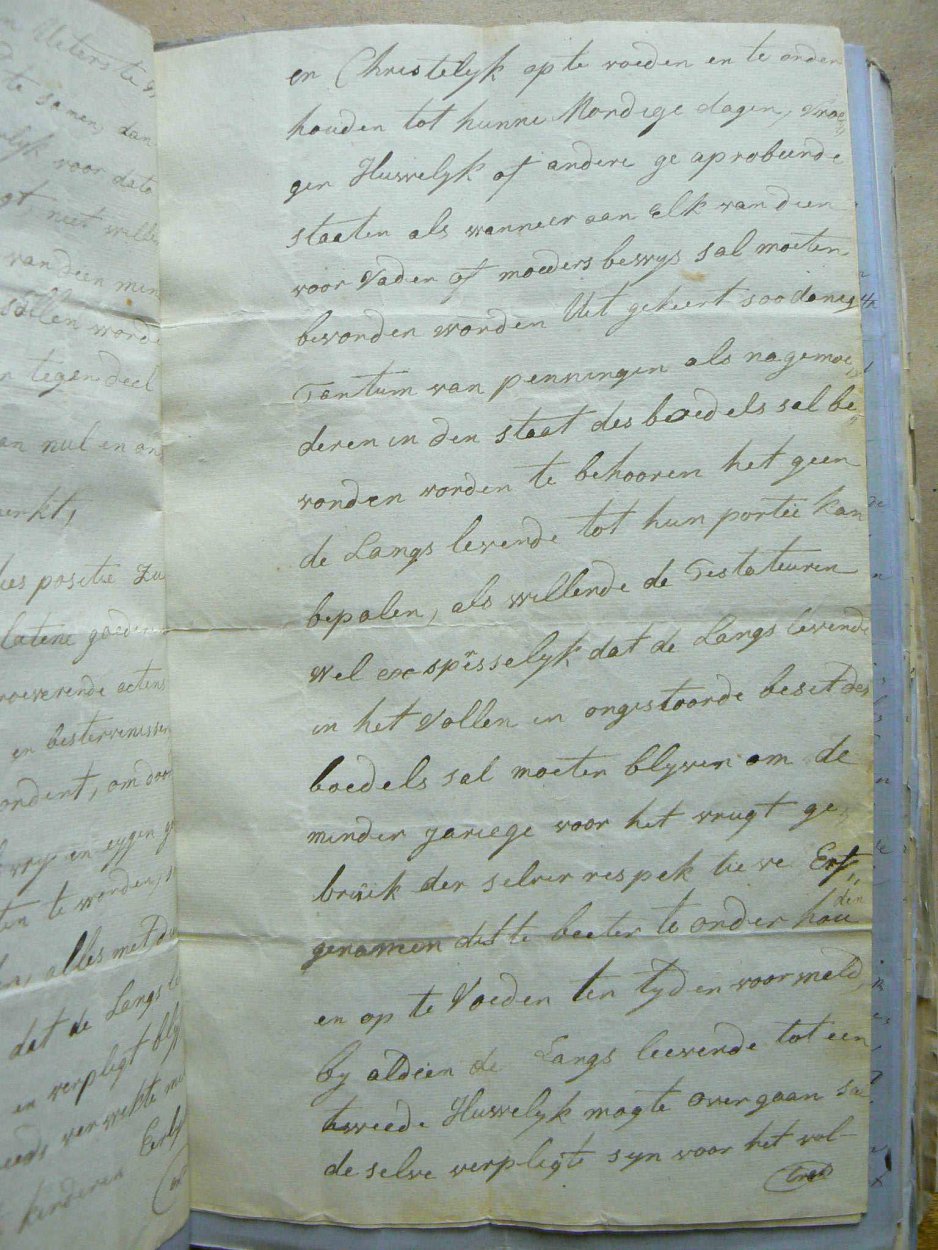 Uiterste
te samen, dan
lyk voor dato
gt, niet wille
van deen min
sullen worde
tegendeel
nul en on
erkt,
positie zu
latene goederen
roeverende actens
en bestervenissen
ondent, om door
vry en eygen
ten te worden,
alles met
dat de Langs
en verpligt bly
verwekte
kinderen Erf
en Christelyk op te voeden en te onder
houden tot hunne Mondige dagen, vroe
ger Huwelyk of andere ge aprobeerde
staaten als wanneer aan Elk van dien
voor Vader of moeders bewys sal moeten
bevonden worden Uit gekeert soo danig
Tantum van penningen als na gemoe
deren in den staat des boedels sal be
vonden worden te behooren het geen
de Langs levende tot hun portie kan
bepalen, als willende de Testateuren
wel expresselyk dat de Langs levende
in het Vollen in ongestoorde besit des
boedels sal moeten blyven om de
minder jariege voor het vrugt ge
bruik der selver respektieve Erf
genamen des te beeter te onder hou
den
en op te Voeden ten tyden voormeld,
by aldien de Langs leevende tot een
tweede Huwelyk mogte overgaan sa
de selve verpligt syn voor het vol-